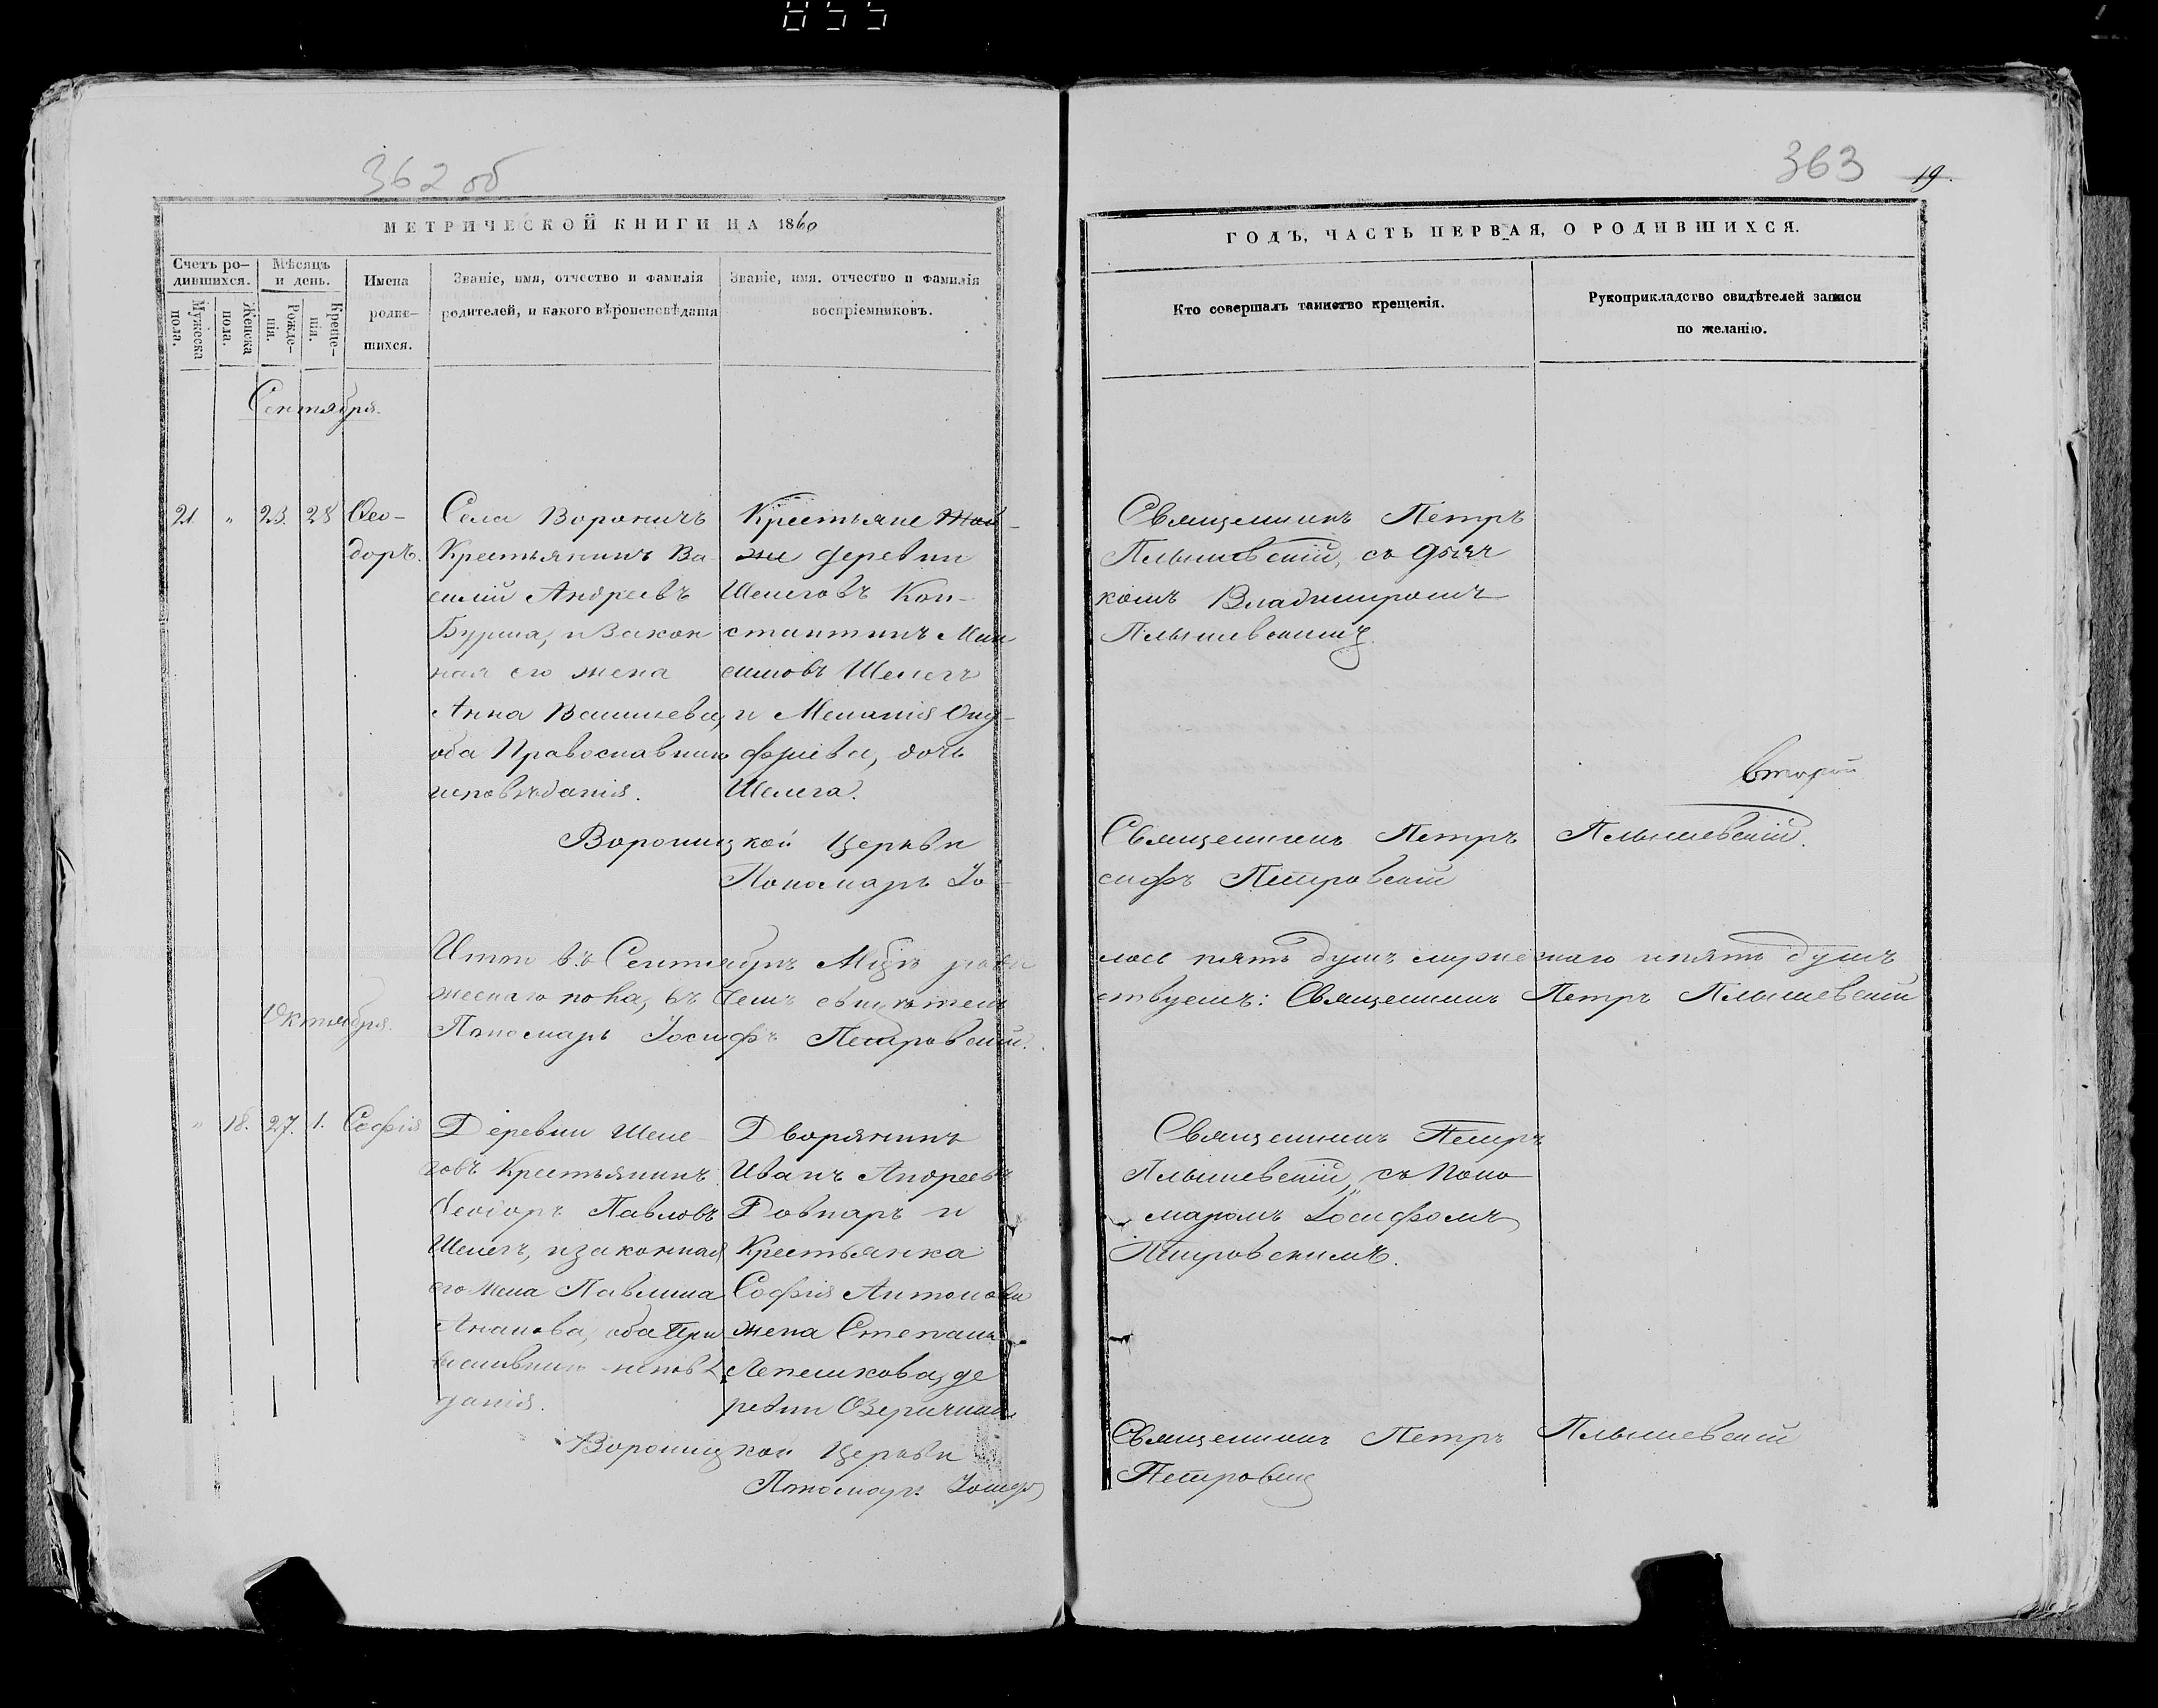 855
362 об
МЕТРИЧЕСКОЙ КНИГИ НА 1860
Счетъ ро-
дившихся.
Мѣсяцъ
и день.
Мужеска
пола.
Женска
пола.
Рожде-
нія.
Креще-
нія.
Имена
роди-
шихся.
Званіе, имя, отчество и фамилія
родителей, и какого вѣроисповѣданія
Званіе, имя. отчество и фамилія
воспріемниковъ.
Сентября.
21. " 23. 28 Ѳео-
доръ.
Села Вороничъ
Крестьянинъ Ва-
силій Андреевъ
Бурша, и Закон
ная его жена
Анна Васильева,
оба Православнаго
исповѣданія.
Крестьяне той-
же деревни
Шелеговъ Кон-
стантинъ Мак
симовъ Шелегъ
и Меланія Ону-
фріева, дочь
Шелега.
Вороницкой Церкви
Пономарь Іо-
Итого въ Сентябрѣ Мцѣ роди
женскаго пола, въ чемъ свидѣтель
Пономарь Іосифъ Петровскій.
Октября.
" 18. 27. 1. Софія
Деревни Шеле-
говъ Крестьянинъ
Ѳеодоръ Павловъ
Шелегъ, и законная
его жена Павлина
оба Пра
вославнаго исповѣ
данія.
Дворянинъ
Иванъ Андреевъ
Довнаръ и
Крестьянка
Софія Антонова
жена Степана
Лепешкова, де
ревни Озеричина
Вороницкой Церкви
Пономарь Іосифъ
363
19.
ГОДЪ, ЧАСТЬ ПЕРВАЯ, О РОДИВШИХСЯ.
Кто совершалъ таинство крещенія.
Рукоприкладство свидѣтелей записи
по желанію.
Священникъ Петръ
Плышевскій, съ дьяч
комъ Владимиромъ
Плышевскимъ.
второй
Священникъ Петръ Плышевскій.
сифъ Петровскій
лось пять душъ мужескаго и пять душъ
ствуемъ: Священникъ Петръ Плышевскій
Священникъ Петръ
Плышевскій, съ Поно
маремъ Іосифомъ
Петровскимъ.
Священникъ Петръ Плышевскій
Петровскій